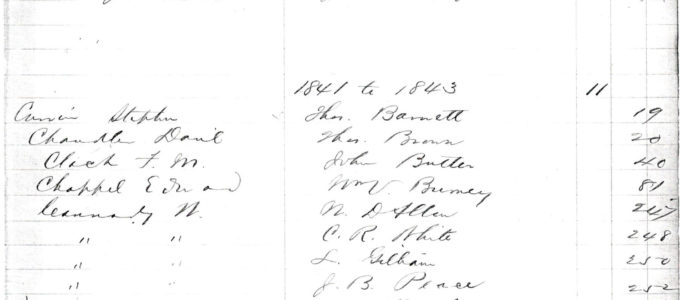 1841 to 1843 11
Stephen Thos. Barnett 19
Chandler Danl Thos. Brown 20
Clack F. M. John Butler 40
Chappel Edward Wm V. Bumey 81
Cannady N. N. D Allen 247
" " C. R. White 248
" " L. Gilliam 250
" " J. B. Peace 252